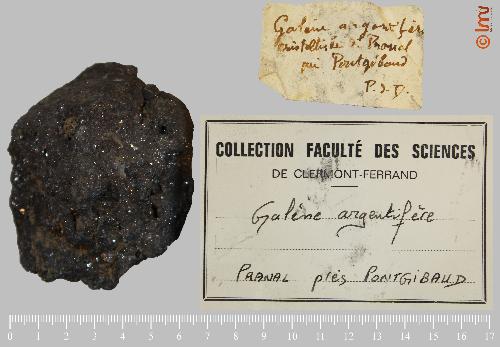 Galène argentifère
cristallisée de Pranal
Pontgibaud
P.d.D.
lmv
COLLECTION FACULTÉ DES SCIENCES
DE CLERMONT-FERRAND
Galène argentifère
PRANAL près PONTGIBAUD
0 1 2 3 4 5 6 7 8 9 10 11 12 13 14 15 16 17